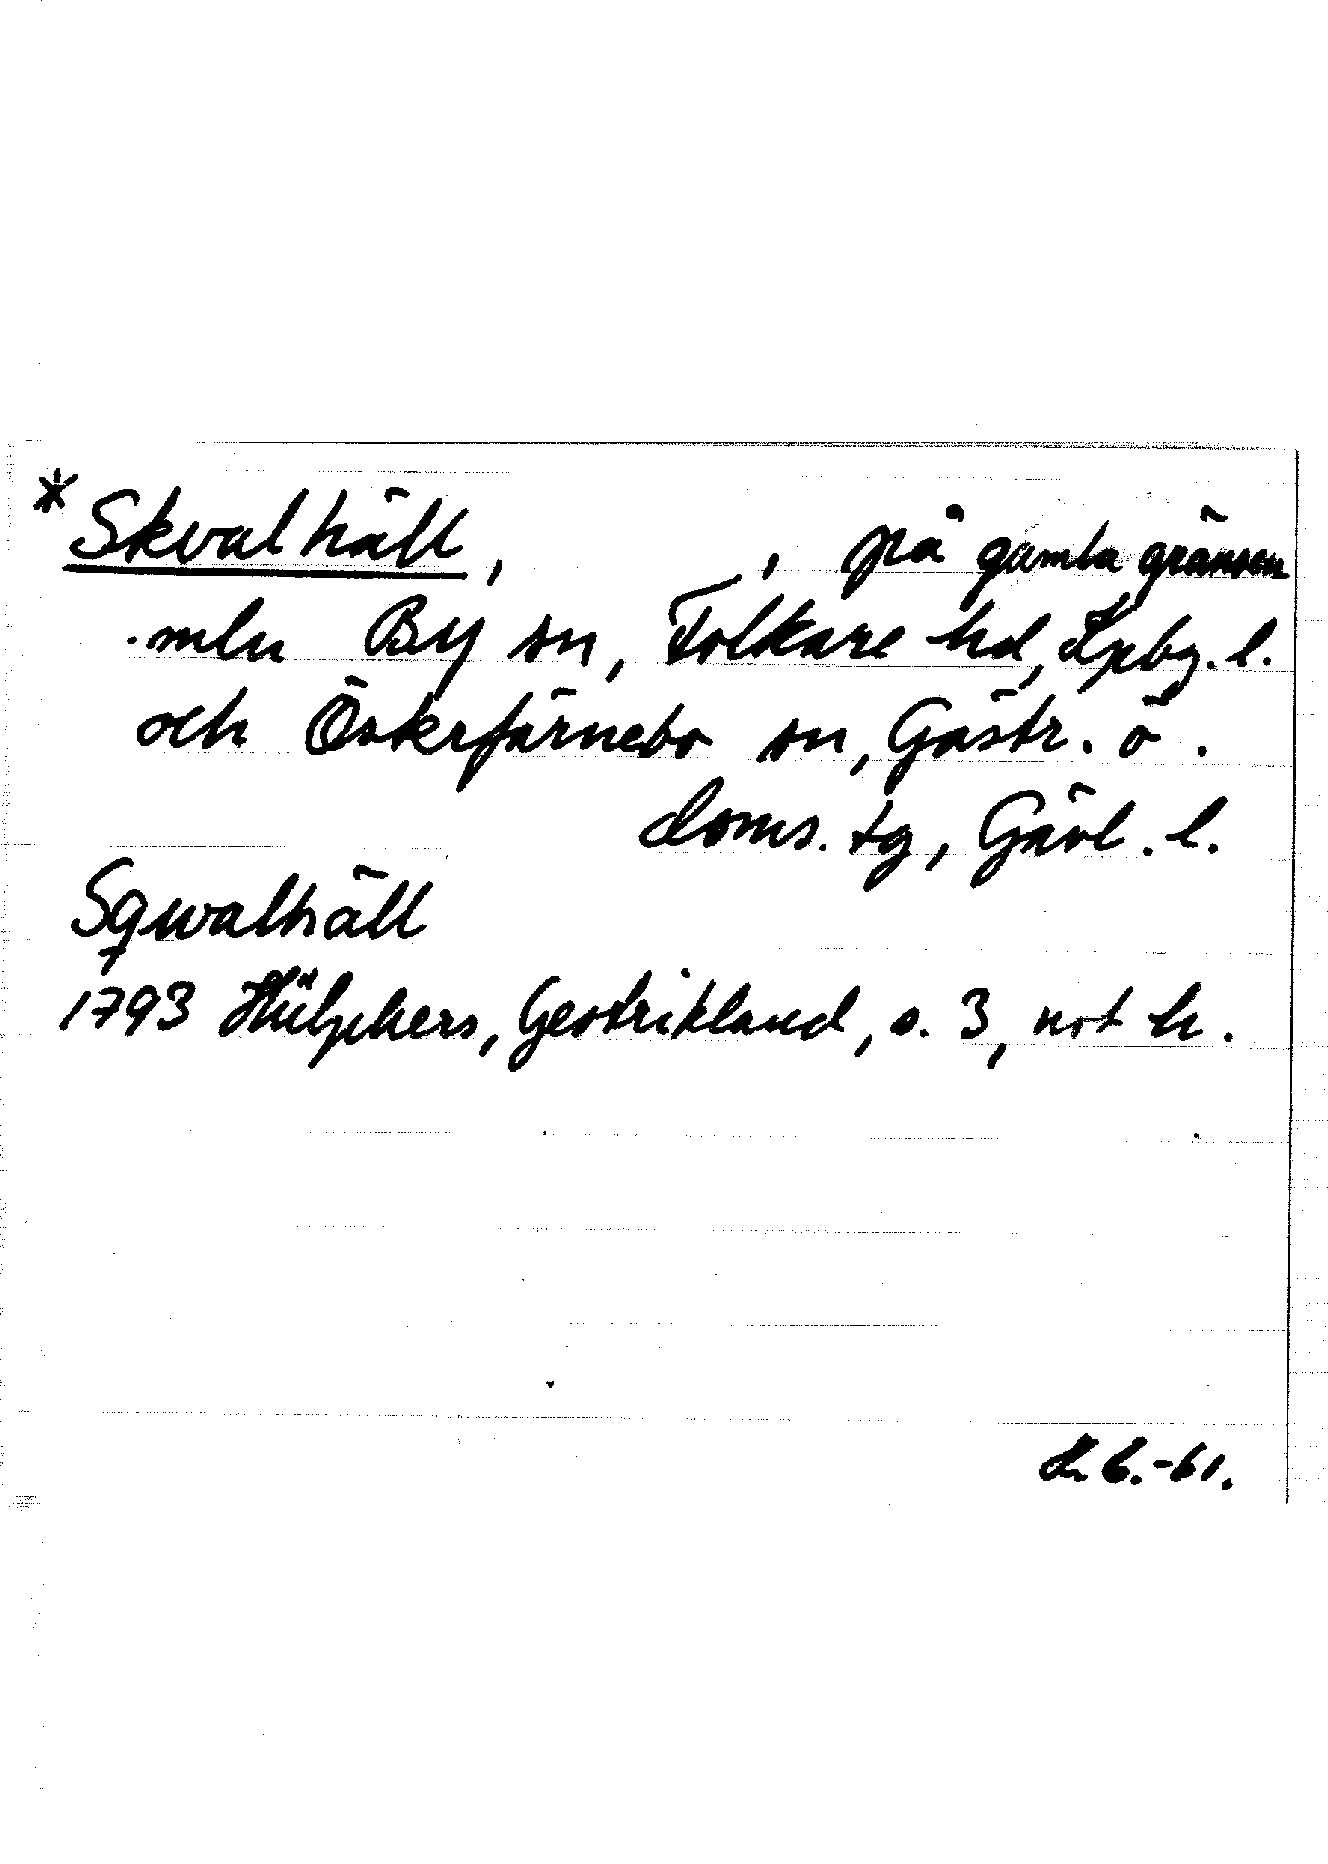 * Skvalhäll, , på gamla gränsen
mln By sn, Folkare hd, Kpbg. l.
och Österfärnebo sn, Gästr. ö.
doms. tg, Gävl. l.
Sqwalhäll
1793 Hülphers, Gestrikland, s. 3, not h.
-61.